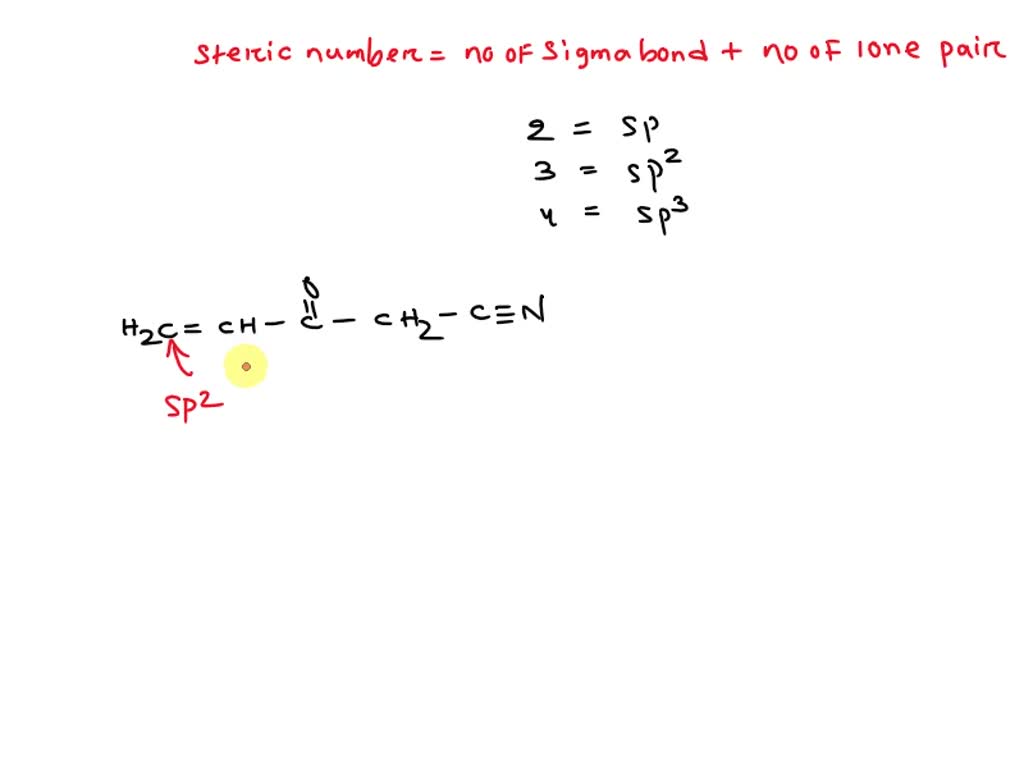 Steric number = no of Sigma bond + no of lone pair
2 = sp
3 = sp²
4 = sp³
O
H₂C = CH - C - CH₂ - C≡N
sp²